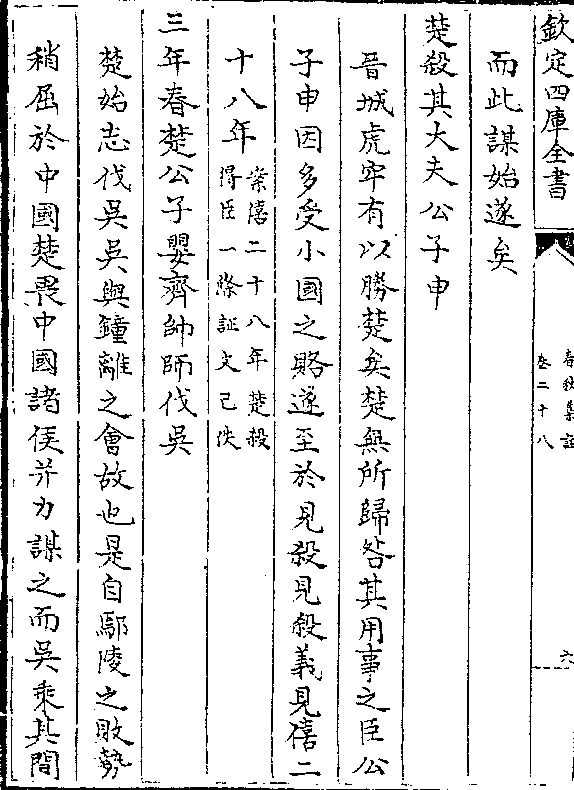 欽定四庫全書
春秋集註
卷二十八
六
而此謀始遂矣
楚殺其大夫公子申
晉城虎牢有以勝楚矣楚無所歸咎其用事之臣公
子申因多受小國之賂遂至於見殺見殺義見僖二
十八年案僖二十八年楚殺
得臣一條註文已佚
三年春楚公子嬰齊帥師伐吳
楚始志伐吳吳與鐘離之會故也是自鄢陵之敗勢
稍屈於中國楚畏中國諸侯并力謀之而吳乘其間